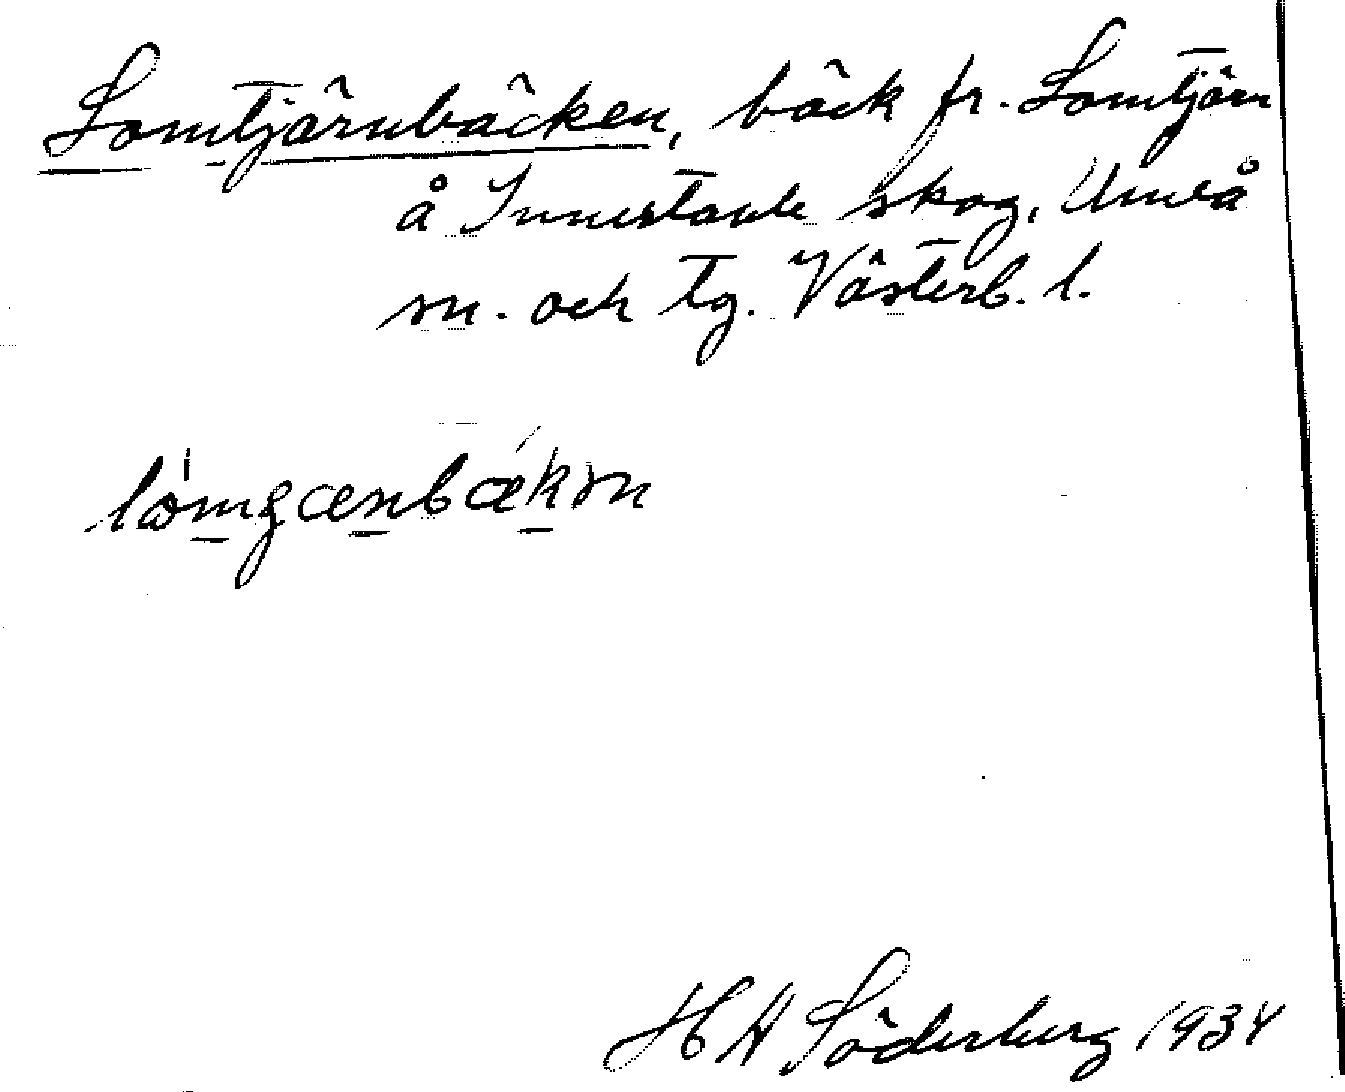 Lomtjärnbäcken, bäck fr. Lomtjärn
å Innertavle skog, Umeå
sn. och tg. Västerb. l.
H A Söderberg 1934